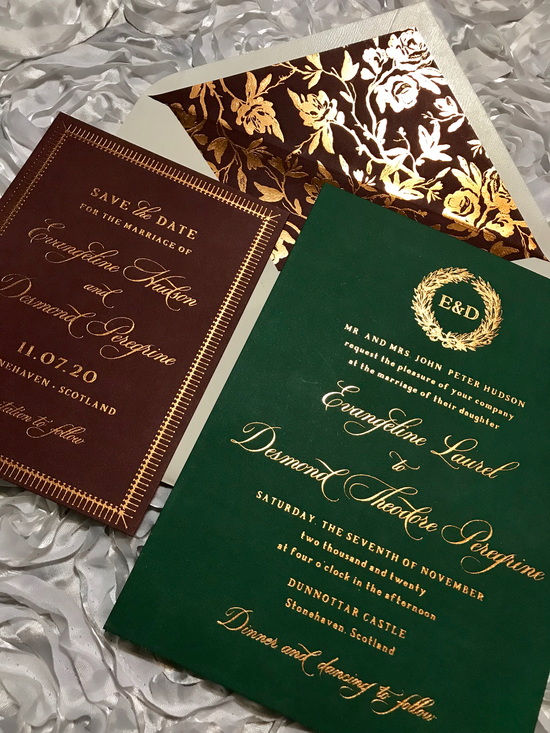 SAVE the DATE
FOR THE MARRIAGE OF
Evangeline Hudson
and
Desmond Peregrine
11.07.20
NEHAVEN . SCOTLAND
to follow
E&D
MR AND MRS JOHN PETER HUDSON
request the pleasure of your company
at the marriage of their daughter
Evangeline Laurel
to
Desmond Theodore Peregrine
SATURDAY, THE SEVENTH OF NOVEMBER
two thousand and twenty
at four o'clock in the afternoon
DUNNOTTAR CASTLE
Stonehaven, Scotland
Dinner and dancing to follow